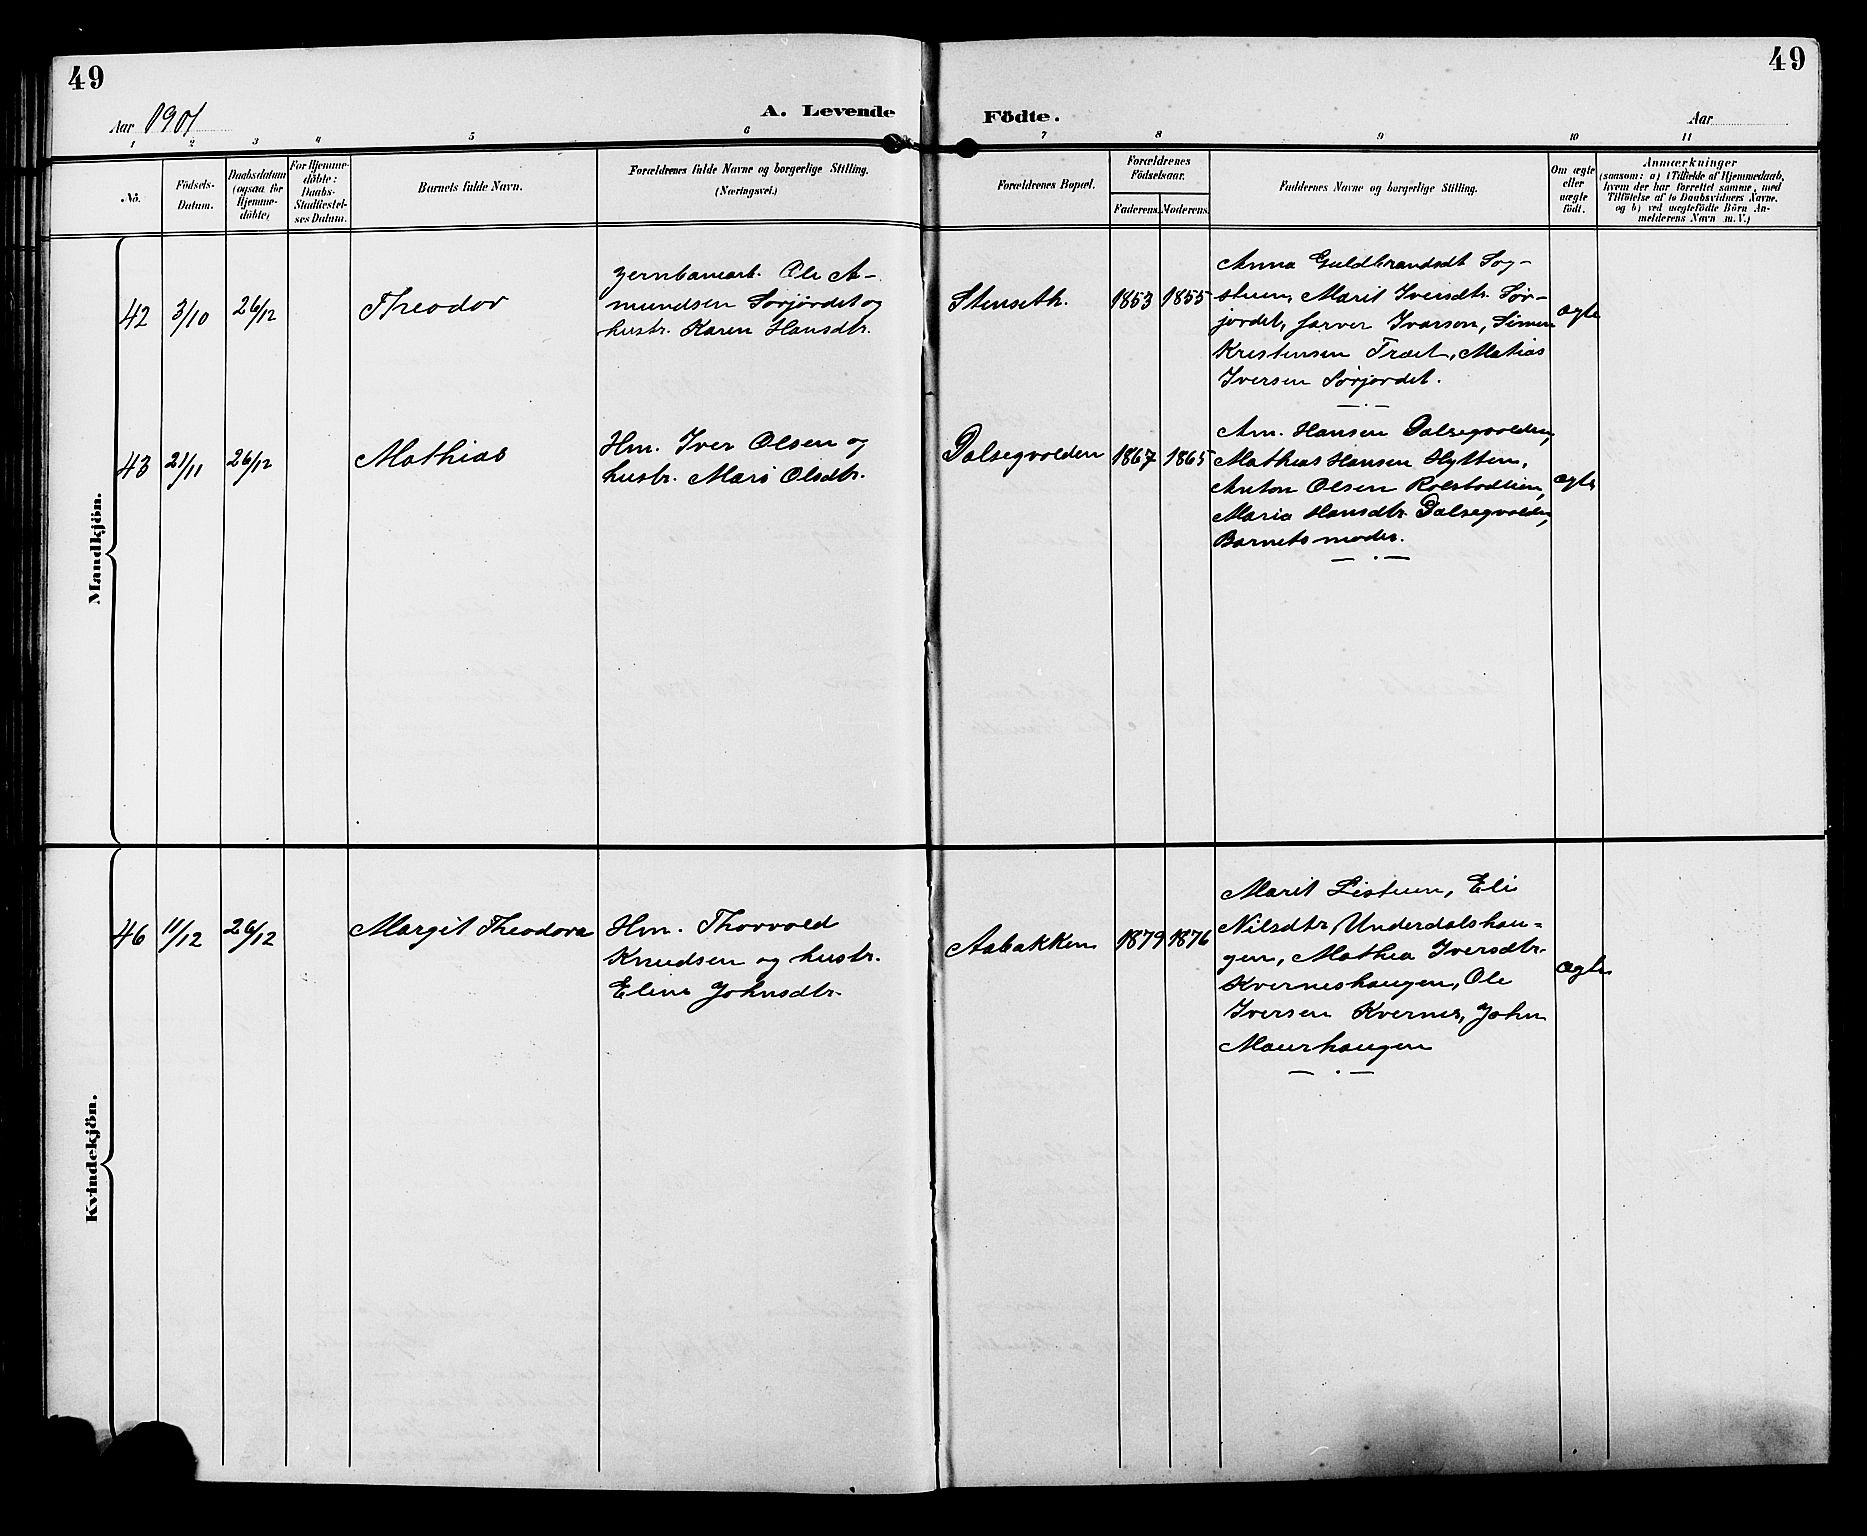 49
49
Aar 1901
A. Levende Födte.
Aar
1 2 3 4 5 6 7 8 9 10 11
No.
Födsels-
Datum.
Daabsdatum
(ogsaa for
Hjemme-
döbte)
For Hjemme-
döbte:
Daabs-
Stadfæstel-
ses Datum.
Barnets fulde Navn.
Forældrenes fulde Navne og borgerlige Stilling.
(Næringsvei.)
Forældrenes Bopæl.
Forældrenes
Födselsaar.
Faderens. Moderens.
Faddernes Navne og borgerlige Stilling.
Om ægte
eller
uægte
født.
Anmærkninger
(saasom: a) i Tilfælde af Hjemmedaab,
hvem der har forrettet samme, med
Tilföielse af to Daabsvidners Navne.
og b) ved uægtefödte Börn An-
melderens Navn m. V.)
Mandkjön.
42 3/10 26/12
Theodor
Jernbanearb. Ole A-
mundsen Sørjordet og
hustr. Karen Hansdtr.
Stenseth.
1853 1855
Anna Guldbrandsdt Sog-
stuen, Marit Iversdtr. Sør-
jordet, farver Ivarson, Simen
Kristensen Træet, Matias
Iversen Sørjordet.
ægte
43 21/11 26/12
Mathias
Hm. Iver Olsen og
hustr. Mari Olsdtr.
Dalsegvolden
1867 1865
Am. Hansen Dalsegvolden,
Mathias Hansen Hytten,
Anton Olsen Rolstadlien,
Maria Hansdtr. Dalsegvolden,
Barnets moder.
ægte
Kvindekjön.
46 11/12 26/12
Margit Theodora
Hm. Thorvald
Knudsen og hustr.
Eline Johnsdtr.
Aabakken
1879 1876
Marit Listuen, Eli
Nilsdtr Underdalshau-
gen, Mathea Iversdtr.
Kverneshaugen, Ole
Iversen Kvernes, John
Maurhaugen
ægte